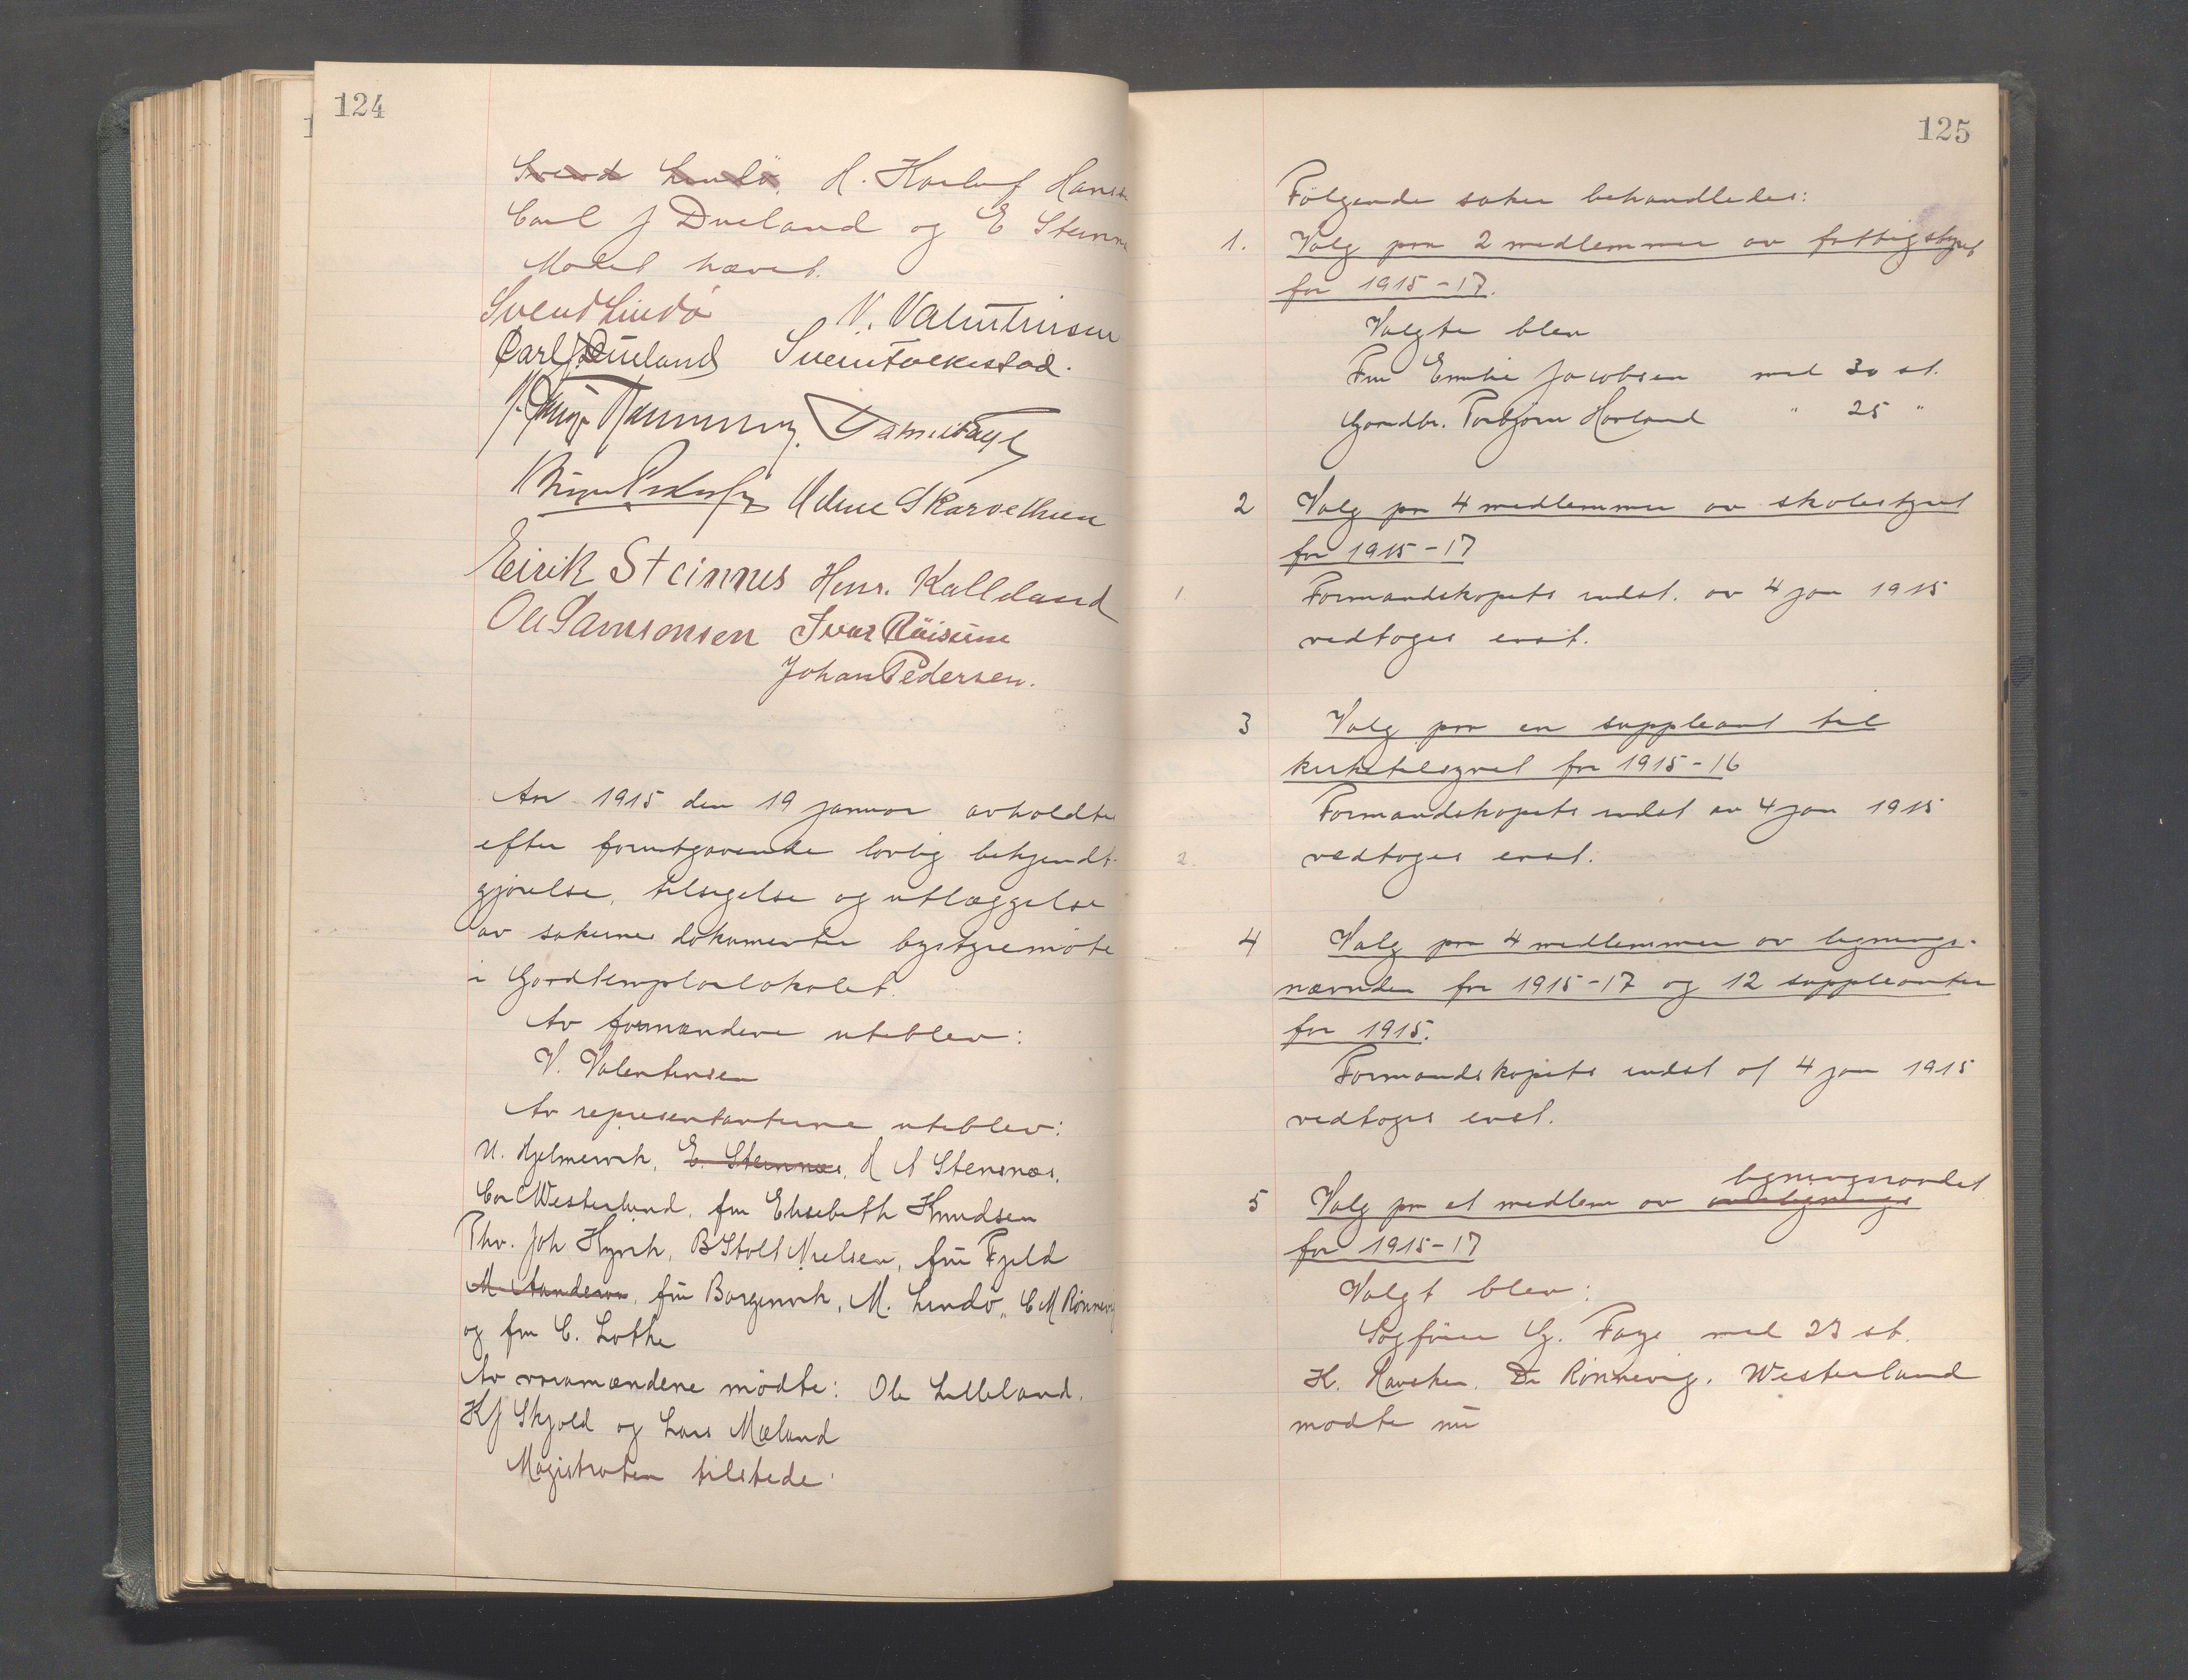 124
Svend Lindö, H. Karluf Hans
Carl J Dueland og E Steinn
Mötet hævet.
Svend Lindö
V. Valentinsen
Carl J. Dueland Svein Folkestad.
Eirik Steinnes Henr. Kalleland
Ole Samsonsen Ivar Röisume
Johan Pedersen.
Aar 1915 den 19 januar avholdtes
efter forutgaaende lovlig bekjendt-
gjørelse, tilsigelse og utlæggelse
av sakernes dokumenter bystyremöte
i Goodtemplarlokalet.
Av formændene uteblev:
V. Valentinsen
Av representanterne uteblev:
N. Hjelmervik, E. Steinnæs, H A Stensnæs,
Carl Westerlund, fru Elisabeth Knudsen
Thv. Joh Hysvik, B Stolt Nielsen, frue Fjeld
M. Aanderaa, frue Borgenvik, M. Lindö, C M Rönnevig
og fru C. Lothe
Av varamændene mödte: Ole Lilleland.
K J Skjold og Lars Mæland
Magistraten tilstede.
125
Fölgende saker behandledes:
1. Valg paa 2 medlemmer av fattigstyret
for 1915-17.
Valgte blev
Fru Emilie Jacobsen med 30 st.
Gaardbr. Torbjørn Havland " 25 "
2 Valg paa 4 medlemmer av skolestyret
for 1915-17
Formandskapets indst. av 4 jan 1915
vedtoges enst.
3 Valg paa en suppleant til
kirketilsynet for 1915-16
Formandskapets indst av 4 jan 1915
vedtoges enst.
4 Valg paa 4 medlemmer av lignings-
nævnden for 1915-17 og 12 suppleanter
for 1915.
Formandskapets indst af 4 jan 1915
vedtoges enst.
5 Valg paa et medlem av overlignings ligningsraadet
for 1915-17
Valgt blev:
Sagförer G. Faye med 23 st.
H. Hausken. Dr Rönnevig. Westerlund
mödte nu